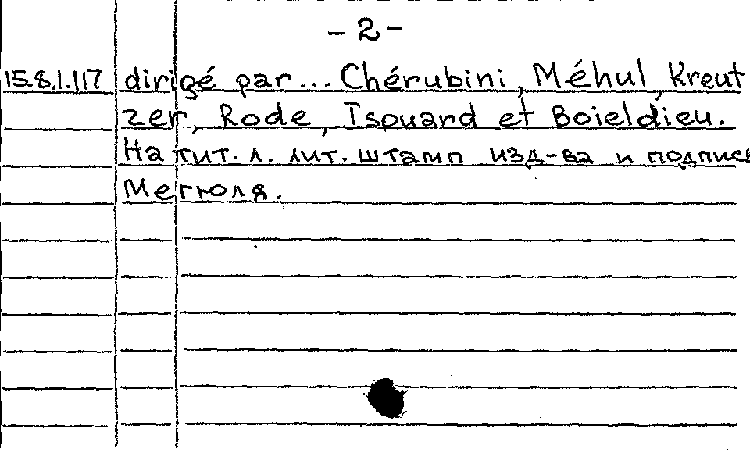 -2-
15.8.1.117 dirigé par... Chérubini, Méhul, Kreut
zer, Rode, Isouard et Boieldieu.
На тит. л. лит. штамп изд-ва и подпись
Мегюля.